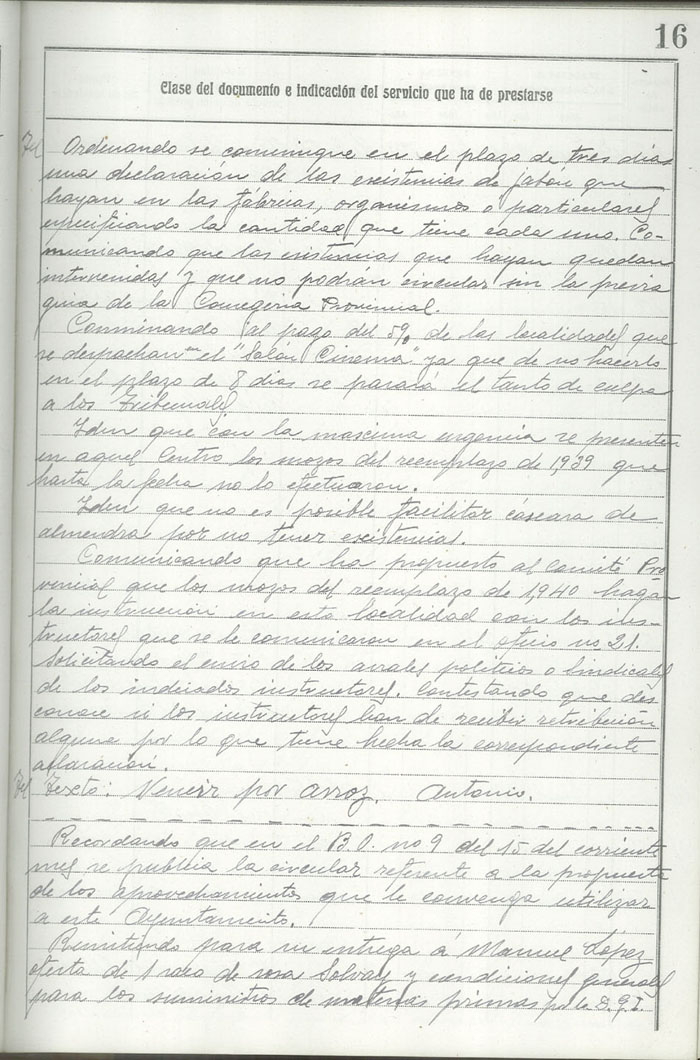 16
Clase del documento e indicación del servicio que ha de prestarse
Tel Ordenando se comunique en el plazo de tres dias
una declaración de las existencias de jabón que
hayan en las fábricas, organismos o particulares
especificando la cantidad que tiene cada uno. Co-
municando que las existencias que hayan quedan
intervenidas y que no podrán circular sin la previa
guia de la Consegeria Provincial.
Conminando al pago del 5% de las localidades que
se despachan en el "Salón Cinema" ya que de no hacerlo
en el plazo de 8 dias se pasará el tanto de culpa
a los Tribunales.
Iden que con la maxima urgencia se presenten
en aquel Centro los mozos del reemplazo de 1,939 que
hasta la fecha no lo efectuaron.
Iden que no es posible facilitar cáscara de
almendra por no tener existencias.
Comunicando que ha propuesto al Comité Pro-
vincial que los mozos del reemplazo de 1,940 hagan
la instrucción en esta localidad con los ins-
tructores que se le comunicaron en el oficio no 21.
Solicitando el envio de los avales politicos o Sindicales
de los indicados instructores. Contestando que des
conoce si los instructores han de recibir retribución
alguna por lo que tiene hecha la correspondiente
aclaración.
Tel Texto: Venir por arroz. Antonio.
Recordando que en el B.O. no 9 del 15 del corriente
mes se publica la circular referente a la propuesta
de los aprovechamientos que le convenga utilizar
a este Ayuntamiento.
Remitiendo para su entrega á Manuel López
oferta de 1 de sosa Solvay y condiciones generales
para los suministros de materias primas por la D.G.I.